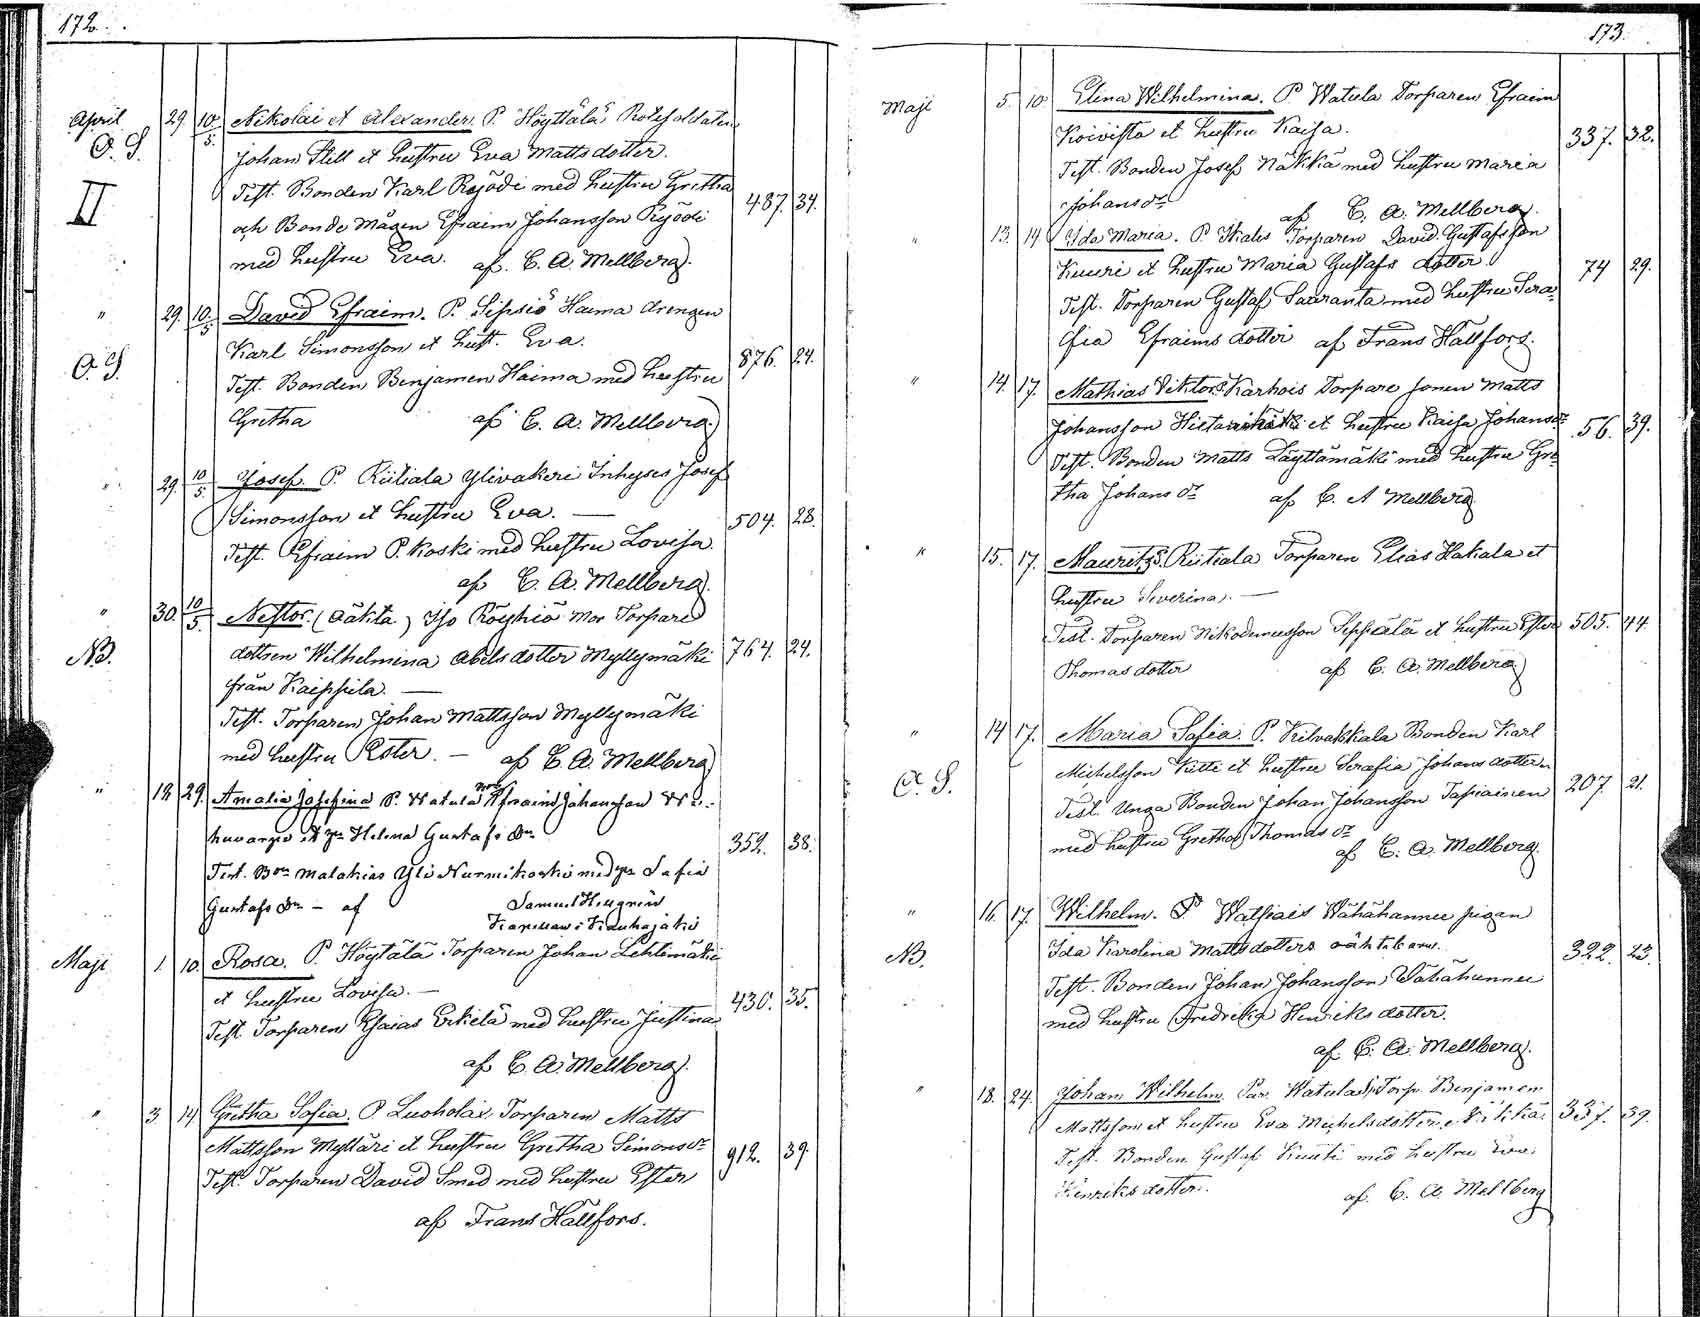 172.
April 29 10/5 Nikolai et Alexander. P. Höyttälä Rotesoldaten
O. S. Johan Stell et hustru Eva Mattsdotter.
II Test. Bonden Karl Röjödi med hustru Gretha 487. 34.
och Bonde Mågen Efraim Johansson Röjödi
med hustru Eva. af. C. A. Mellberg.
" 29. 10/5 David Efraim. P. Sipsiö Haima drengen
Karl Simonsson et hust. Eva.
O. S. Test. Bonden Benjamen Haima med hustru 876. 24.
Gretha af C. A. Mellberg
" 29. 10/5 Josef. P. Riitiala Ylivakeri Inhyses Josef
Simonsson et hustru Eva. — 504. 28.
Test. Efraim P. Koski med hustru Lovisa.
af C. A. Mellberg.
" 30. 10/5 Nestor. (oäkta) Iso Röyhiö mor Torpare
NB. dottren Wilhelmina Abelsdotter Myllymäki 764. 24.
från Kaippila. —
Test. Torparen Johan Mattsson Myllymäki
med hustru Ester. — af C. A. Mellberg
" 18 29. Amalia Josefina P. Watula Efraim Johansson
huvarpe et Helena Gustafs dr 352. 38.
Test. Bon Malakias Yli Nurmikoski med Sofia
Gustafs dr — af Samuel Hellgrén
Kapellan i Kauhajoki
Maji 1. 10. Rosa. P. Höytälä Torparen Johan Lehtimäki
et hustru Lovisa. — 430. 35.
Test. Torparen Esaias Erkelä med hustru Justina
af C. A. Mellberg.
" 3 14 Gretha Sofia. P. Luoholax. Torparen Matts
Mattsson Mylläri et hustru Gretha Simons dr 912. 39.
Test. Torparen David Smed med hustru Ester
af Frans Hällfors.
173.
Maji 5. 10. Elina Wilhelmina. P. Watula Torparen Efraim
Koivisto et hustru Kaisa. 337. 32.
Test. Bonden Josef Näkkä med hustru Maria
Johans dr af C. A. Mellberg.
" 13. 14. Ida Maria. P. Ikalis Torparen David Gustafsson
Kuuri et hustru Maria Gustafs dotter. 74 29.
Test. Torparen Gustaf Saaranta med hustru Sera-
fia Efraims dotter af Frans Hällfors.
" 14. 17. Mathias Viktor. P. Karhois Torpare sonen Matts
Johansson et hustru Kaisa Johans dr 56. 39.
Test. Bonden Matts Läyttämäki med hustru Gre-
tha Johans dr af C. A Mellberg
" 15. 17. Mauritz. P. Riitiala Torparen Elias Hakala et
hustru Severina. —
Test. Torparen Nikodemusson Seppälä et hustru Ester 505. 44.
Thomasdotter af C. A. Mellberg.
" 14 17. Maria Sofia. P. Kilvakkala Bonden Karl
Michelsson Kitti et hustru Serafia Johans dotter
O. S. Test. Unga Bonden Johan Johansson Tapiainen 207. 21.
med hustru Gretha Thomas dr
af C. A. Mellberg.
" 16. 17. Wilhelm. P. Watsiais Wähähannu pigan
NB. Ida Karolina Mattsdotters oäkta barn. 322. 23.
Test. Bonden Johan Johansson Wähähannu
med hustru Fredrika Henriks dotter.
af C. A. Mellberg.
" 18. 24. Johan Wilhelm. Par. Watula Torp. Benjamen
Mattsson et hustru Eva Michelsdotter 337. 39.
Test. Bonden Gustaf Knuuti med hustru Eva
Henriks dotter. af. C. A. Mellberg